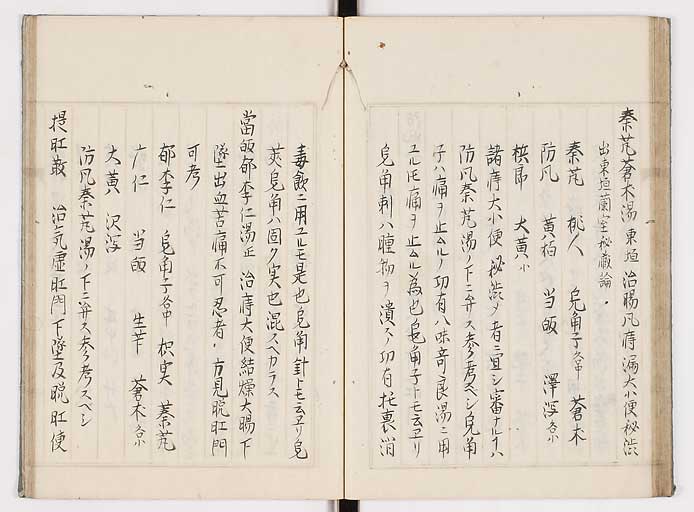 秦艽蒼朮湯 東垣 治腸風痔漏大小便秘渋
出東垣蘭室秘蔵論
秦艽 桃人 皂角子 各中 蒼朮
防风 黄栢 当皈 澤瀉 各小
梹郎 大黄 小
諸痔大小便秘渋ノ者ニ宜シ審ナルハ
防风秦艽湯ノ下ニ弁ス参考スベシ皂角
子ハ痛ヲ止ムルノ功有八味奇良湯ニ用
ユルモ痛ヲ止ムル為也皂角子トモ云ヱリ
皂角刺ハ腫物ヲ潰スノ功有托裏消
毒飲ニ用ユルモ是也皂角針トモ云ヱリ皂
莢皂角ハ固ク実也混スヘカラス
當皈郁李仁湯 正 治痔大便結燥大腸下
墜出血苦痛不可忍者・方見脱肛門
可考
郁李仁 皂角子 各中 枳実 秦艽
广仁 当皈 生芐 蒼朮 各小
大黄 沢瀉
防风秦艽湯ノ下ニ弁ス参考スベシ
提肛散 治気虚肛門下墜及脱肛便